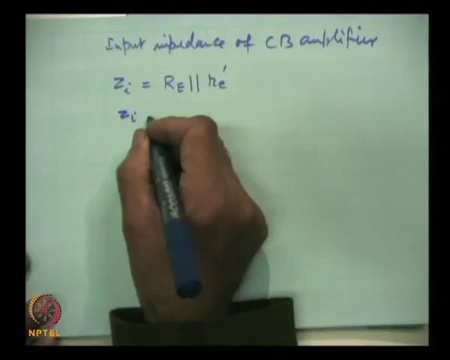 Input impedance of CB amplifier
Zi = RE || re'
Zi
NPTEL